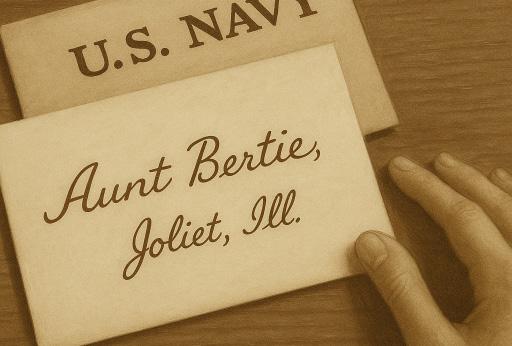 U.S. NAVY
Aunt Bertie,
Joliet, Ill.